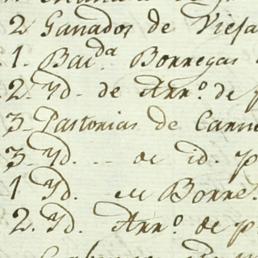 2 Ganados de Vieja
1. Bac.da Borregas
2. Yd. de Arn.o de p
3 Pastorias de Carne
3 Yd. -- de id. p
1 Yd. de Borre
2. Yd. Arn.o de p